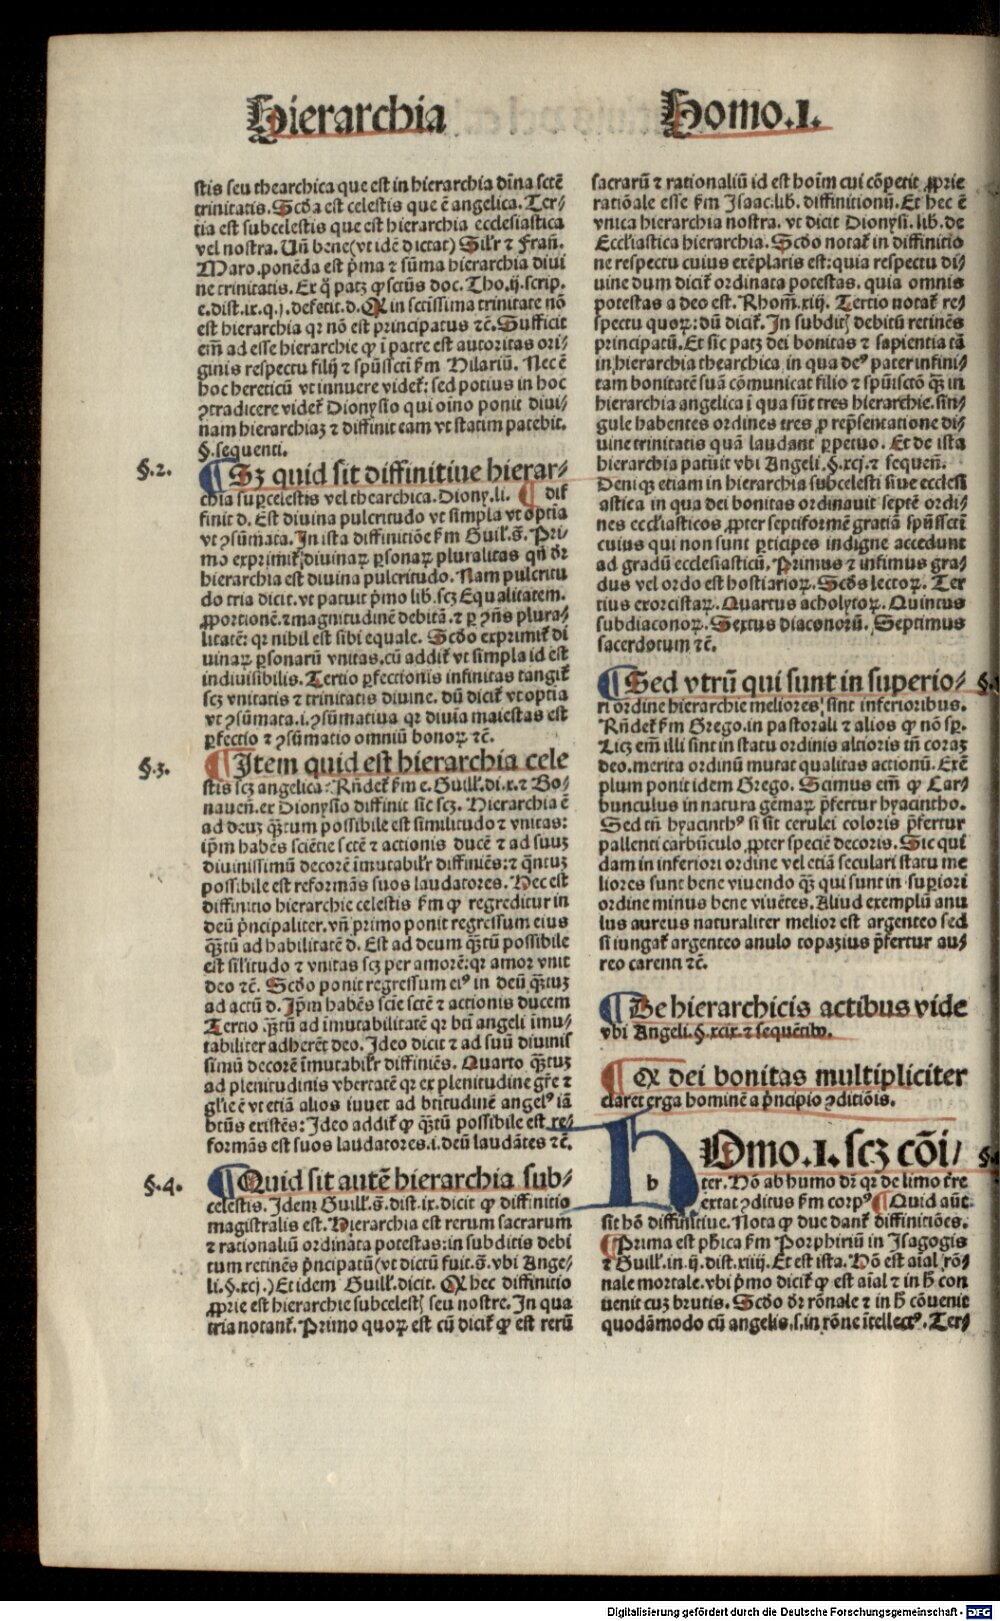 Hierarchia
Homo.I.
stis seu thearchica que est in hierarchia diīna sctē
trinitatis. Scd̓a est celestis que ē angelica. Ter⸗
tia est subcelestis que est hierarchia ecclesiastica
vel nostra. Un̄ bene (vt idē dictat) Sil'r ⁊ Fran̄.
Maro. ponēda est p̓ma ⁊ sūma hierarchia diui
ne trinitatis. Ex q̇ patꝫ ꝙ sctūs doc. Tho. ij. scrip.
e. dist. ix. q. j. defecit. d. Q in sctissima trinitate nō
est hierarchia qꝛ nō est principatus ⁊c̄. Sufficit
em̄ ad esse hierarchie ꝙ ī patre est autoritas ori⸗
ginis respectu filij ⁊ spūssctī fm̄ Hilariū. Nec ē
hoc hereticū vt innuere videt̄: sed potius in hoc
ꝯtradicere videt̄ Dionysio qui oīno ponit diui⸗
nam hierarchiaꝫ ⁊ diffinit eam vt statim patebit.
§. sequenti.
§.2.
¶ Sꝫ quid sit diffinitiue hierar⸗
chia suꝑcelestis vel thearchica. Diony. li. ¶ dif
finit d. Est diuina pulcritudo vt simpla vt optia
vt ꝯsūmata. In ista diffinitiōe fm̄ Guil. s̄. Pri⸗
mo exprimit̄ diuinaꝝ ꝑsonaꝝ pluralitas qn̄ dr̄
hierarchia est diuina pulcritudo. Nam pulcritu
do tria dicit. vt patuit p̓mo lib. scꝫ Equalitatem.
ꝓportionē. ⁊ magnitudinē debitā. ⁊ ꝑ ꝯn̄s plura⸗
litatē: qꝛ nihil est sibi equale. Scd̓o exprimit̄ di
uinaꝝ ꝑsonarū vnitas. cū addit̄ vt simpla id est
indiuisibilis. Tertio ꝑfectionis infinitas tangit̄
scꝫ vnitatis ⁊ trinitatis diuine. dū dicit̄ vt optia
vt ꝯsūmata. i. ꝯsūmatiua qꝛ diuīa maiestas est
ꝑfectio ⁊ ꝯsūmatio omniū bonoꝝ ⁊c̄.
§.3.
¶ Item quid est hierarchia cele
stis scꝫ angelica: Rn̄det̄ fm̄ e. Guill'. di. x. ⁊ Bo⸗
nauen̄. ex Dionysio diffinit sic̄ scꝫ. Hierarchia ē
ad deuꝫ qͣꝫtum possibile est similitudo ⁊ vnitas:
ip̄m habēs sciētie sctē ⁊ actionis ducē ⁊ ad suuꝫ
diuinissimū decorē īmutabil'r diffiniēs: ⁊ qͣntuꝫ
possibile est reformās suos laudatores. Hec est
diffinitio hierarchie celestis fm̄ ꝙ regreditur in
deū p̓ncipaliter. vn̄ primo ponit regressum eius
qͣꝫtū ad habilitatē d. Est ad deum qͣꝫtū possibile
est sil'itudo ⁊ vnitas scꝫ per amorē: qꝛ amor vnit
deo ⁊c̄. Scd̓o ponit regressum eiꝰ in deū qͣꝫtuꝫ
ad actū d. Ip̄m habēs scīe sctē ⁊ actionis ducem
Tertio qͣꝫtū ad īmutabilitatē qꝛ btī angeli īmu⸗
tabiliter adherēt deo. Ideo dicit ⁊ ad suū diuinis
simū decorē īmutabil'r diffiniēs. Quarto qͣꝫtuꝫ
ad plenitudinis vbertatē qꝛ ex plenitudine gr̄e ⁊
gl'ie ē vt etiā alios iuuet ad btitudinē angelꝰ iā
btūs existēs: Ideo addit̄ ꝙ qͣꝫtū possibile est re⸗
formās est suos laudatores. i. deū laudātes ⁊c̄.
§.4.
¶ Quid sit autē hierarchia sub⸗
celestis. Idem Guill'. s̄. dist. ix. dicit ꝙ diffinitio
magistralis est. Hierarchia est rerum sacrarum
⁊ rationaliū ordinata potestas: in subditis debi
tum retinēs p̓ncipatū (vt dictū fuit. s̄. vbi Ange⸗
li. §. xcj.) Et idem Guill'. dicit. Q hec diffinitio
ꝓprie est hierarchie subcelestꝭ seu nostre. In qua
tria notant̄. Primo quoꝝ est cū dicit̄ ꝙ est rerū
sacrarū ⁊ rationaliū id est hoīm cui cōpetit ꝓprie
ratiōale esse fm̄ Isaac. lib. diffinitionū. Et hec ē
vnica hierarchia nostra. vt dicit Dionysi. lib. de
Eccl'iastica hierarchia. Scd̓o notat̄ in diffinitio
ne respectu cuius exēplaris est: quia respectu di⸗
uine dum dicit̄ ordinata potestas. quia omnis
potestas a deo est. Rhom̄. xiij. Tertio notat̄ re⸗
spectu quoꝝ: dū dicit̄. In subditꝭ debitū retinēs
principatū. Et sic̄ patꝫ dei bonitas ⁊ sapientia tā
in hierarchia thearchica in qua deꝰ pater infini⸗
tam bonitatē suā cōmunicat filio ⁊ spūisctō qͣꝫ in
hierarchia angelica ī qua sūt tres hierarchie. sin⸗
gule habentes ordines tres ꝓ rep̄sentatione di⸗
uine trinitatis quā laudant ꝑpetuo. Et de ista
hierarchia patuit vbi Angeli. §. xcj. ⁊ sequen̄.
Deniqꝫ etiam in hierarchia subcelesti siue ecclesi
astica in qua dei bonitas ordinauit septē ordi⸗
nes ecclesiasticos ꝓpter septiformē gratiā spūssctī
cuius qui non sunt ꝑticipes indigne accedunt
ad gradū ecclesiasticū. Primus ⁊ infimus gra⸗
dus vel ordo est hostiarioꝝ. Scd̓s lectoꝝ. Ter
tius exorcistaꝝ. Quartus acholytoꝝ. Quintus
subdiaconoꝝ. Sextus diaconorū. Septimus
sacerdotum ⁊c̄.
¶ Sed vtrū qui sunt in superio⸗
ri ordine hierarchie meliores sint inferioribus.
Rn̄det̄ fm̄ Grego. in pastorali ⁊ alios ꝙ nō sꝑ.
Licꝫ em̄ illi sint in statu ordinis altioris tn̄ coraꝫ
deo. merita ordinū mutat qualitas actionū. Exē
plum ponit idem Grego. Scimus em̄ ꝙ Car⸗
bunculus in natura gēmaꝝ p̄fertur hyacintho.
Sed tn̄ hyacinthꝰ si sit cerulei coloris p̄fertur
pallenti carbūculo ꝓpter speciē decoris. Sic qui
dam in inferiori ordine vel etiā seculari statu me
liores sunt bene viuendo qͣꝫ qui sunt in suꝑiori
ordine minus bene viuētes. Aliud exemplū anu
lus aureus naturaliter melior est argenteo sed
si iungat̄ argenteo anulo topazius p̄fertur au⸗
reo carenti ⁊c̄.
¶ De hierarchicis actibus vide
vbi Angeli. §. xcix. ⁊ sequētibꝰ.
¶ Q dei bonitas multipliciter
claret erga hominē a p̓ncipio ꝯditiōis.
h
HOmo.I. scꝫ cōi⸗
ter. Hō ab humo dr̄ qꝛ de limo tr̄re
extat ꝯditus fm̄ corpꝰ ¶ Quid aūt
sit hō diffinitiue. Nota ꝙ due dant̄ diffinitiōes.
¶ Prima est ph̓ica fm̄ Porphiriū in Isagogis
⁊ Guill'. in. ij. dist. xiiij. Et est ista. Hō est aīal rō⸗
nale mortale. vbi p̓mo dicit̄ ꝙ est aīal ⁊ in h̓ con
uenit cuꝫ brutis. Scd̓o dr̄ rōnale ⁊ in h̓ cōuenit
quodāmodo cū angelis. s. in rōne ītellectꝰ. Ter⸗
Digitalisierung gefördert durch die Deutsche Forschungsgemeinschaft - DFG